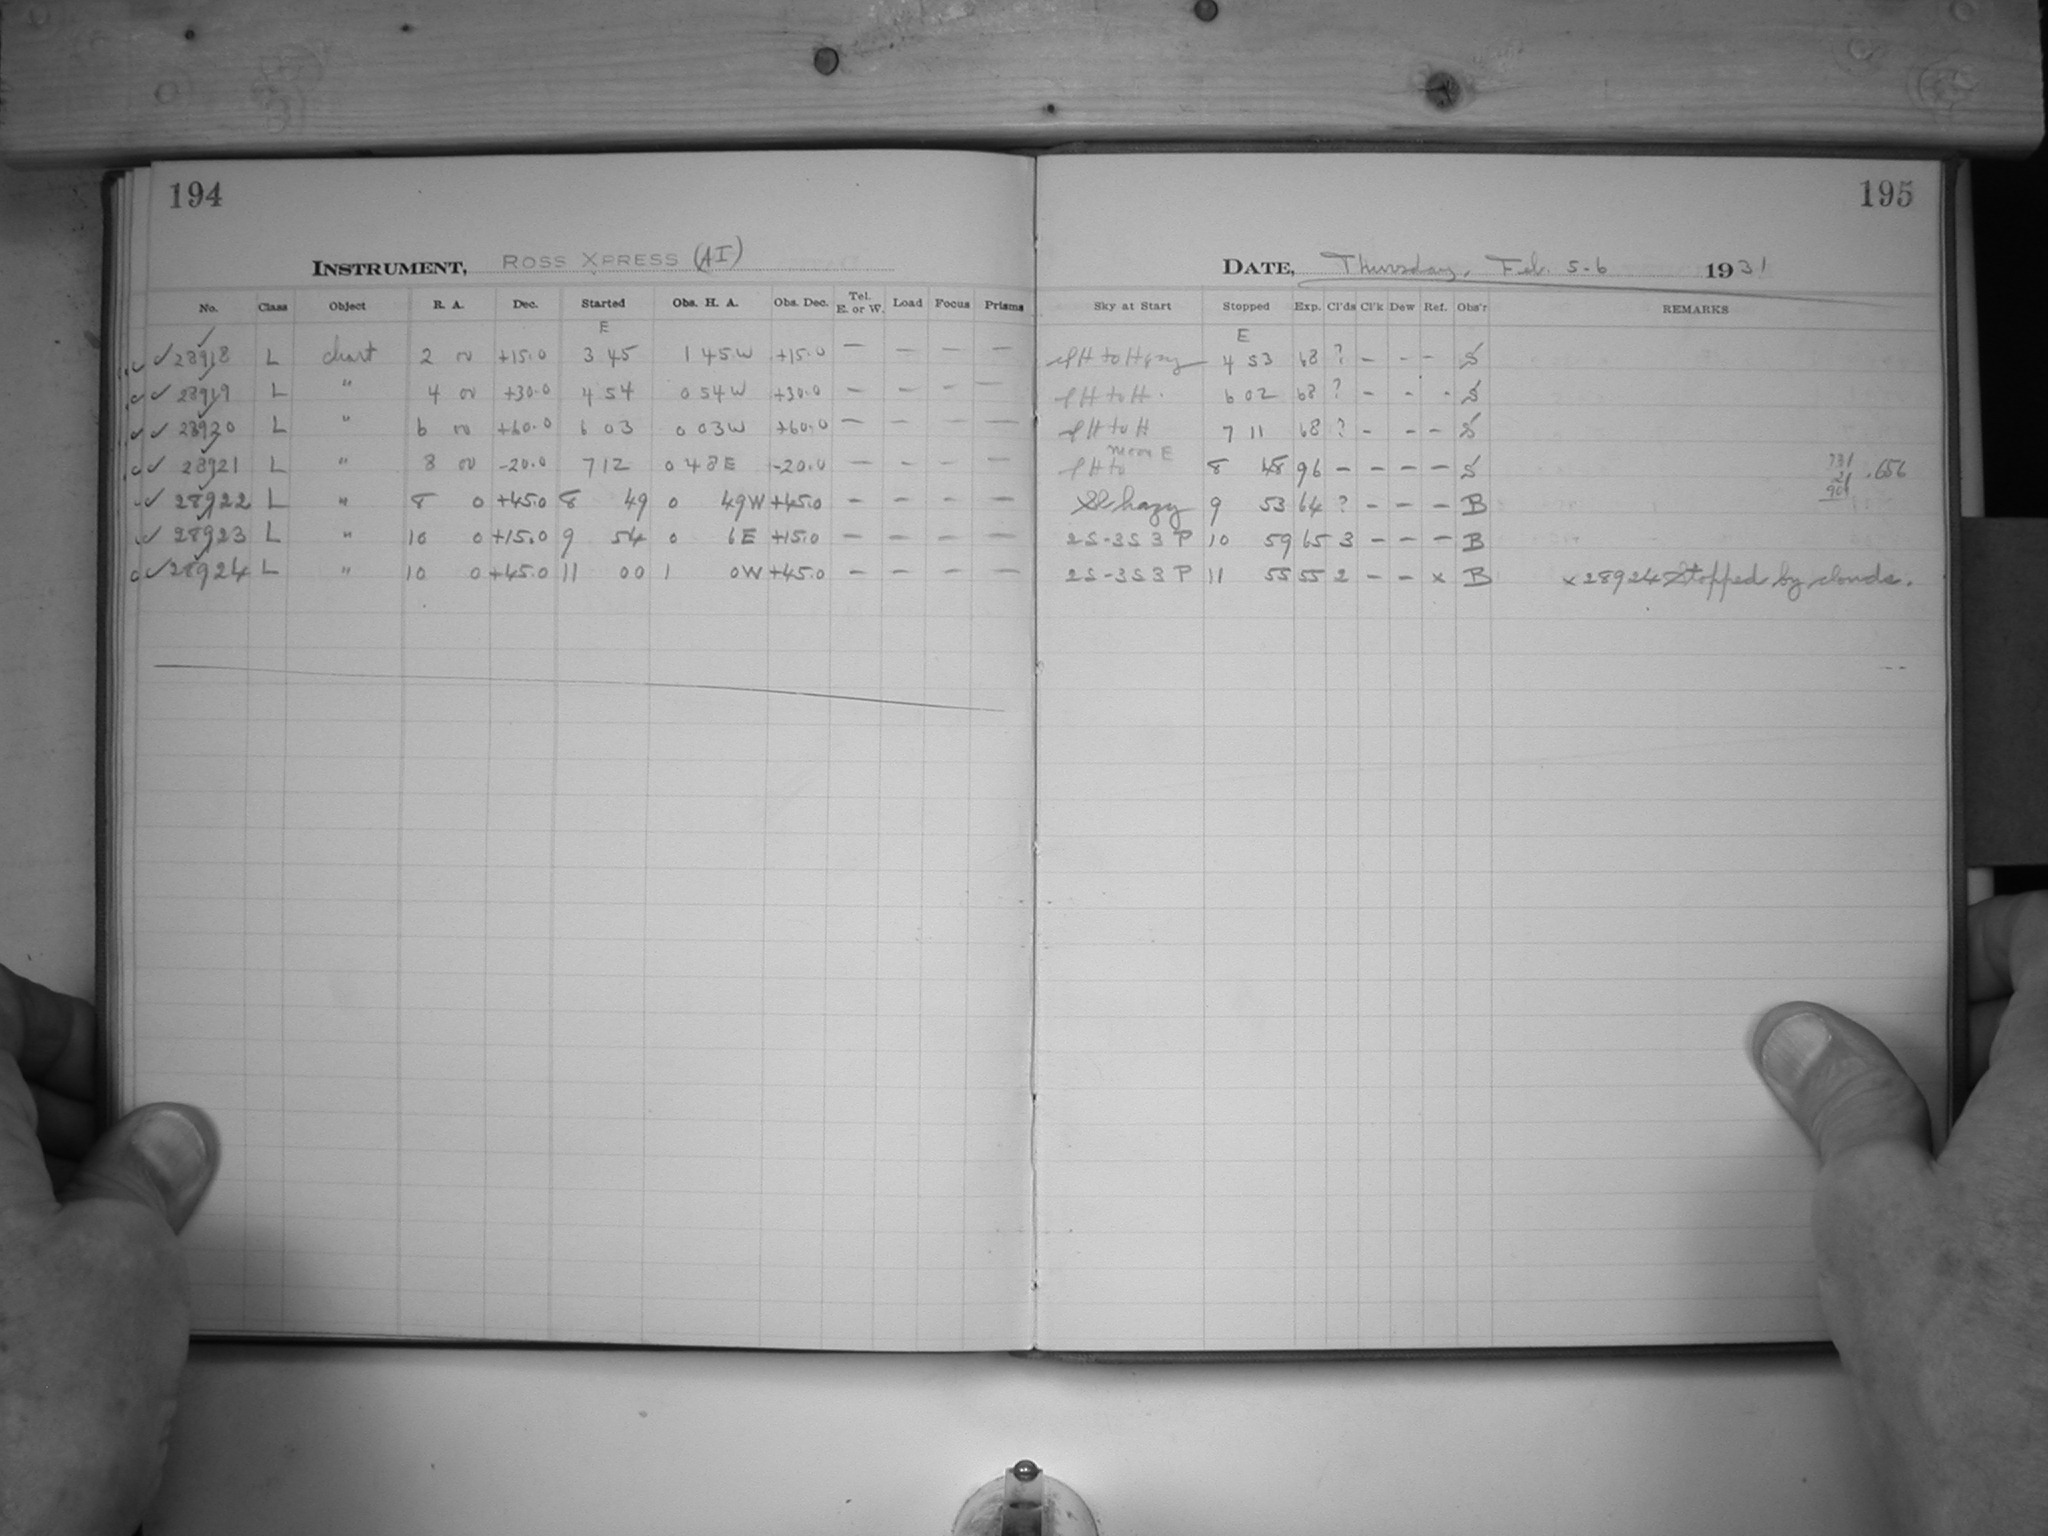 194
INSTRUMENT, ROSS XPRESS (AI)
No. Class Object R. A. Dec. Started Obs. H. A. Obs. Dec. Tel. E. or W. Load Focus Prisms
E
28918 L chart 2 00 +15.0 3 45 1 45W +15.0 — — — —
28919 L " 4 00 +30.0 4 54 0 54W +30.0 — — — —
28920 L " 6 00 +60.0 6 03 0 03W +60.0 — — — —
28921 L " 8 00 -20.0 7 12 0 48E -20.0 — — — —
28922 L " 8 0 +45.0 8 49 0 49W +45.0 — — — —
28923 L " 10 0 +15.0 9 54 0 6E +15.0 — — — —
28924 L " 10 0 +45.0 11 00 1 0W +45.0 — — — —
195
DATE, Thursday, Feb. 5-6 1931
Sky at Start Stopped Exp. Cl'ds Cl'k Dew Ref. Obs'r REMARKS
E
H to Hazy 4 53 68 ? - - - S
H to H. 6 02 68 ? - - - S
H to H 7 11 68 ? - - - S
H to Moon E 8 48 96 - - - - S .656
Sl hazy 9 53 64 ? - - - B
2S-3S 3 P 10 59 65 3 - - - B
2S-3S 3 P 11 55 55 2 - - x B x 28924 Stopped by clouds.